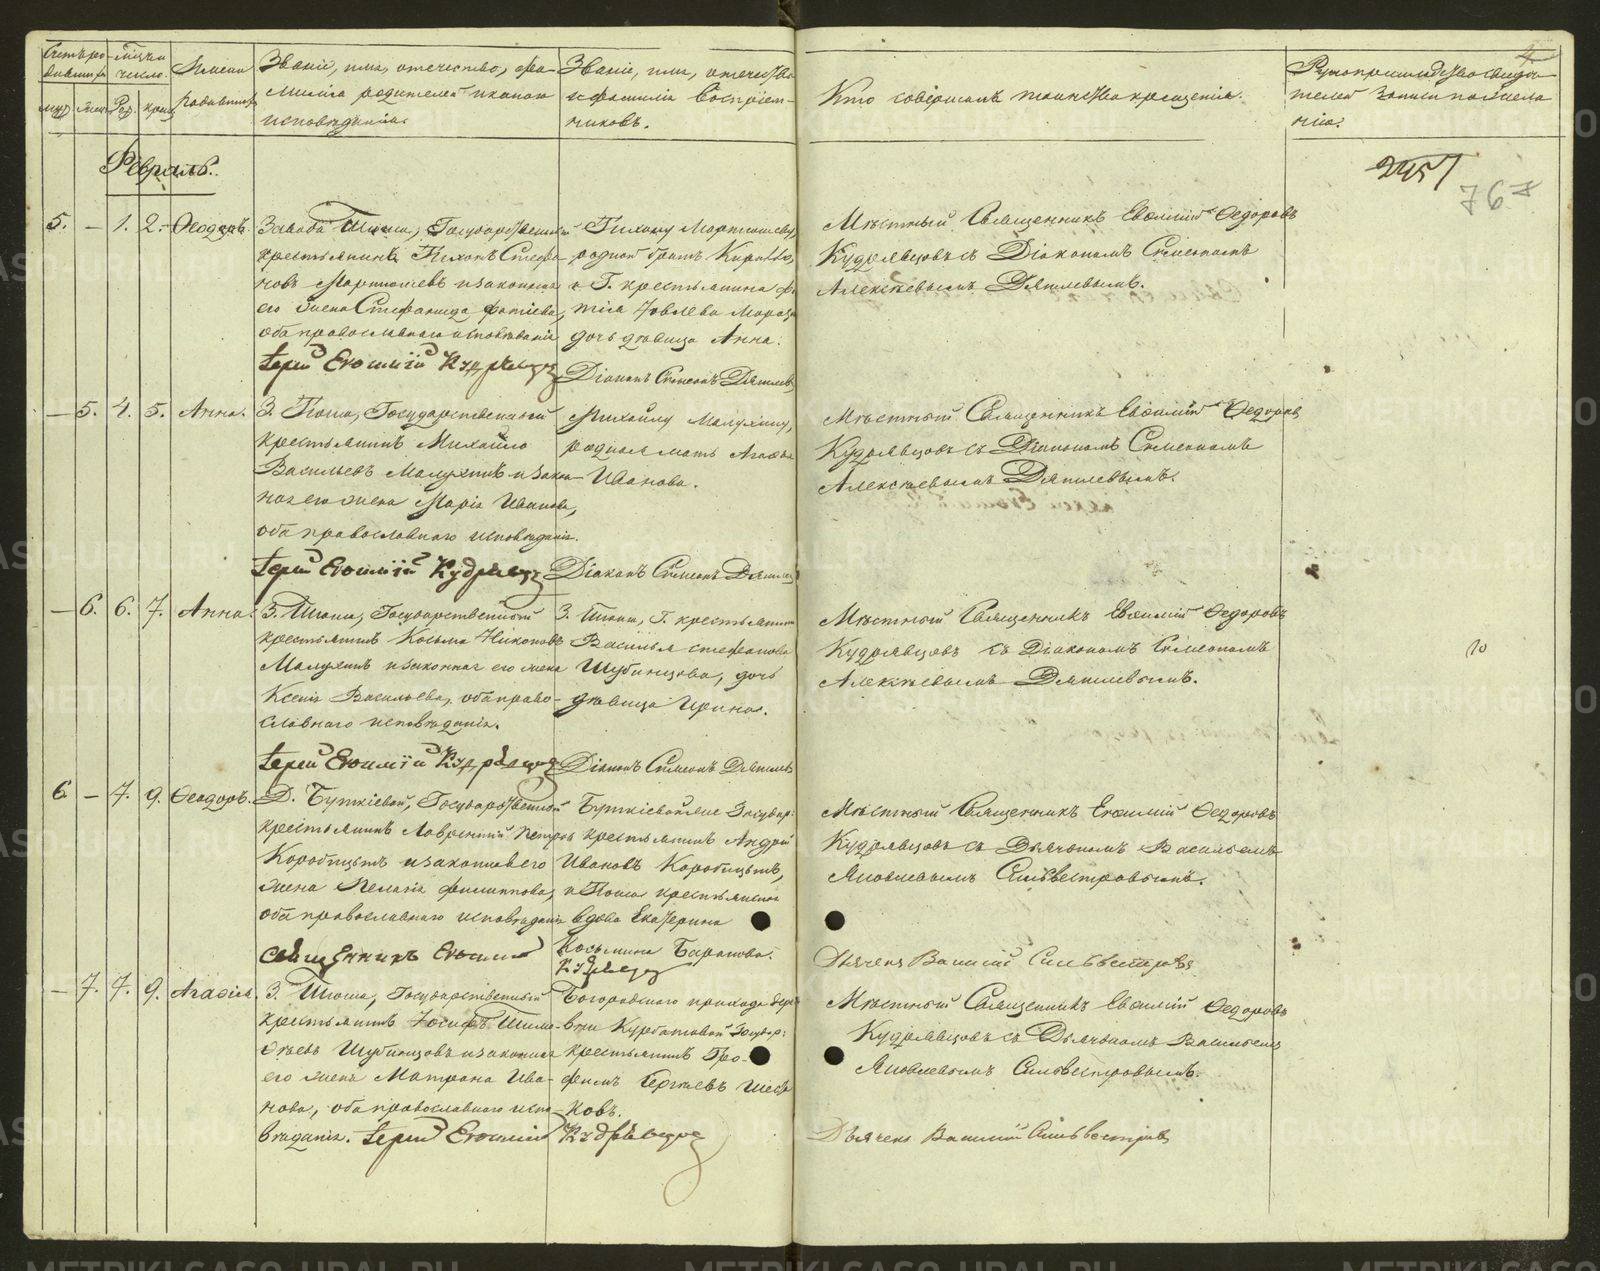 Счетъ ро-
дившихся
Мѣсяцъ и
число.
Имена
родившихся
Званіе, имя, отечество, фа-
милія родителей и какого
исповѣданія.
Званіе, имя, отечество
и фамилія воспріем-
никовъ.
Кто совершалъ таинство крещенія.
Рукоприкладство свидѣ-
телей записи по жела
нію.
муж. жен. Рож. крещ.
4
Февраль.
2457
767
5. – 1. 2. Ѳеодоръ.
Завода Шиши, Государственный
крестьянинъ Тихонъ Стефа-
новъ Мартюшевъ и законная
его жена Стефанида Фотіева,
оба православнаго исповѣданія
Іерей Евѳимій Кудрявцовъ
Тихону Мартюшеву,
родной братъ
и Г. крестьянина Фо-
тія Іовлева
дочь дѣвица Анна.
Діаконъ Симеонъ Дягилевъ
Мѣстный Священникъ Евѳимій Ѳедоровъ
Кудрявцовъ съ Діакономъ Симеономъ
Алексѣевымъ Дягилевымъ.
– 5. 4. 5. Анна.
З. Государственный
крестьянинъ Михайло
Васильевъ Малухинъ и закон-
ная его жена Марія Иванова,
оба православнаго исповѣданія.
Іерей Евѳимій Кудрявцовъ
Михайлу Малухину,
родная мать Агафья
Иванова.
Діаконъ Симеонъ Дягилевъ
Мѣстный Священникъ Евѳимій Ѳедоровъ
Кудрявцовъ съ Діакономъ Симеономъ
Алексѣевымъ Дягилевымъ.
– 6. 6. 7. Анна.
З. Государственный
крестьянинъ Козьма Никоновъ
Малухинъ и законная его жена
Ксенія Васильева, оба право-
славнаго исповѣданія.
Іерей Евѳимій Кудрявцовъ
З. Г. крестьянина
Василья Стефанова
Шубинцова, дочь
дѣвица Ирина.
Діаконъ Симеонъ Дягилевъ
Мѣстный Священникъ Евѳимій Ѳедоровъ
Кудрявцовъ съ Діакономъ Симеономъ
Алексѣевымъ Дягилевымъ.
6 – 7. 9. Ѳеодоръ.
Д. Буткіевой, Государственной
крестьянинъ Лаврентій Петровъ
Коробицынъ и законная его
жена Пелагія Филиппова,
оба православнаго исповѣданія
Священникъ Евѳимій
Буткіевой же Государ:
крестьянинъ Андрей
Ивановъ Коробицынъ,
и крестьянская
вдова Екатерина
Козьмина Баранова.
Кудрявцовъ
Мѣстный Священникъ Евѳимій Ѳедоровъ
Кудрявцовъ съ Дьячкомъ Васильемъ
Яковлевымъ Сильвестровымъ.
Дьячекъ Василій Сильвестровъ
– 7. 7. 9. Агафія.
З. Государственный
крестьянинъ Іосифъ Тимо-
ѳѣевъ Шубинцовъ и законная
его жена Матрона Ива-
нова, оба православнаго испо-
вѣданія. Іерей Евѳимій
Богородскаго прихода дере-
вни Курбатовой Государ:
крестьянинъ Тро-
фимъ Сергѣевъ
ковъ.
Кудрявцовъ
Мѣстный Священникъ Евѳимій Ѳедоровъ
Кудрявцовъ съ Дьячкомъ Васильемъ
Яковлевымъ Сильвестровымъ.
Дьячекъ Василій Сильвестровъ
METRIKI.GASO-URAL.RU